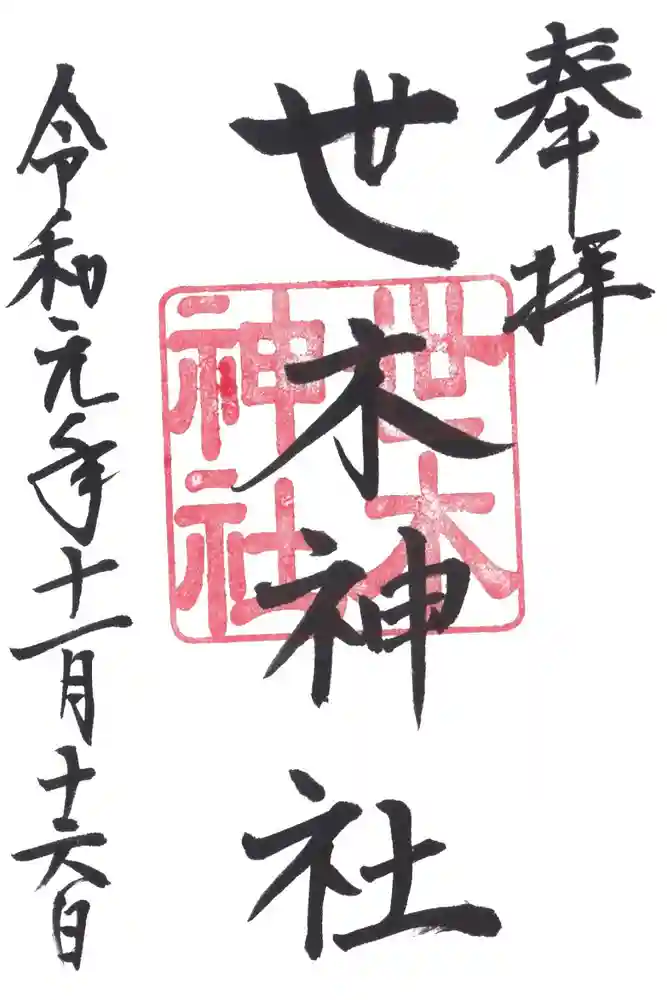 奉拝
世木神社
世木神社
令和元年十一月十六日